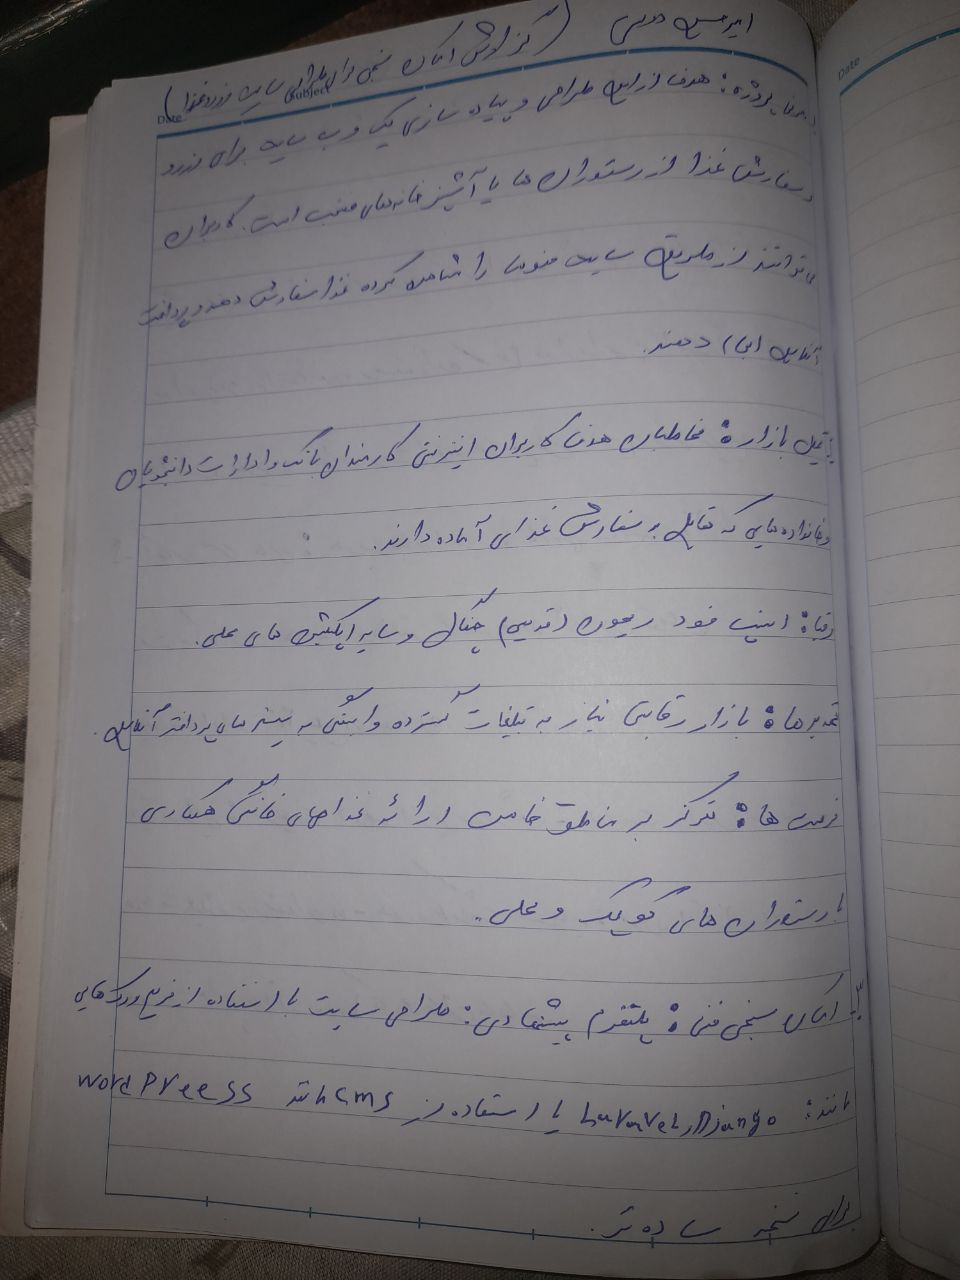 امیرحسین (گزارش امکان سنجی برای طراحی سایت رزرو غذا)
Date Subject
Date
۱. معرفی پروژه: هدف از این طراحی و پیاده سازی یک وب سایت برای رزرو
و سفارش غذا از رستوران ها یا آشپزخانه‌های منتخب است. کاربران
می‌توانند از طریق سایت منوها را مشاهده کرده غذا سفارش دهند و پرداخت
آنلاین انجام دهند.
۲. تحلیل بازار: مخاطبان هدف کاربران اینترنتی کارمندان بانک و ادارات دانشجویان
و خانواده‌هایی که تمایل به سفارش غذای آماده دارند.
رقبا: اسنپ فود ریحون (قدیمی) چنگال و سایر اپلیکیشن های محلی.
تهدیدها: بازار رقابتی نیاز به تبلیغات گسترده وابستگی به سیستم های پرداخت آنلاین.
فرصت ها: تمرکز بر مناطق خاص ارائه غذاهای خانگی همکاری
با رستوران های کوچک و محلی.
۳. امکان سنجی فنی: پلتفرم پیشنهادی: طراحی سایت با استفاده از فریم ورک هایی
مانند: Laravel, Django یا استفاده از cms مانند WordPreess
برای نسخه ساده تر.